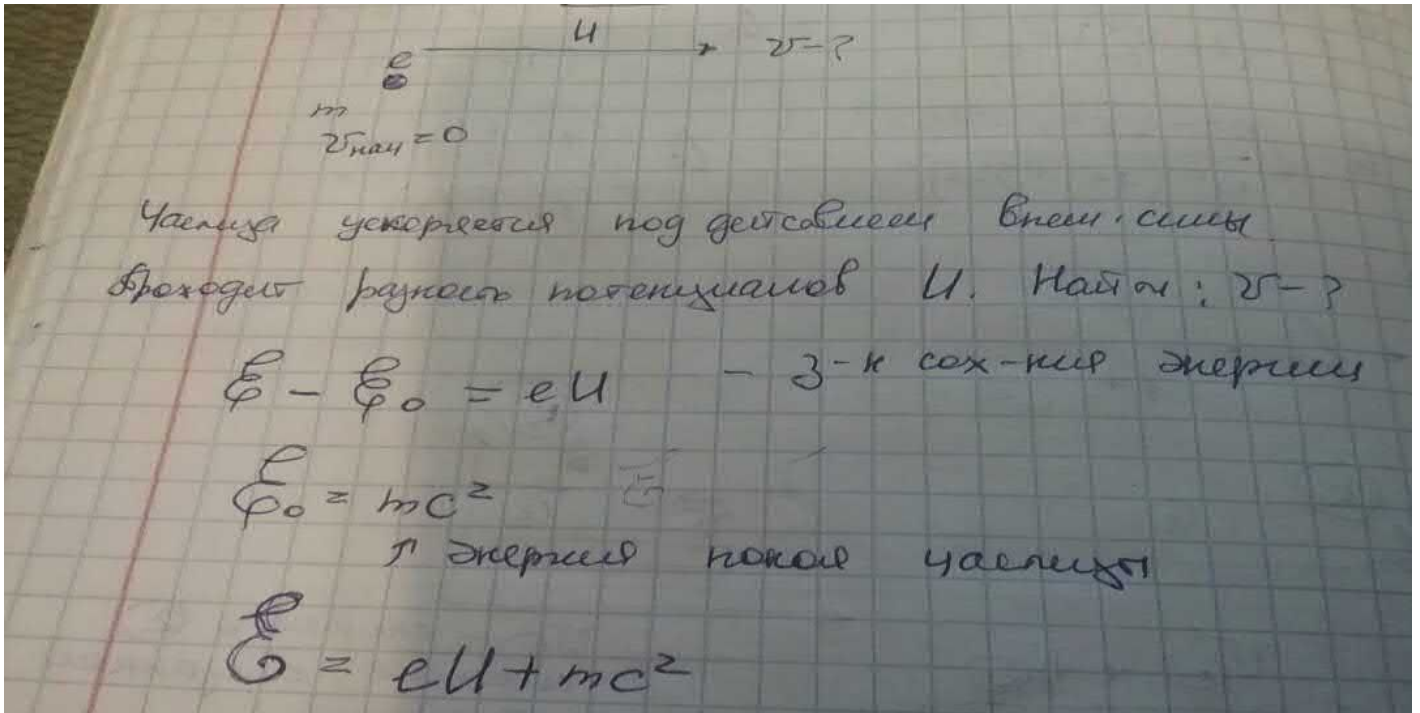 U
e v-?
m
vнач=0
Частица ускоряется под действием внеш. силы.
Проходит разность потенциалов U. Найти: v-?
ℰ - ℰ₀ = eU - З-н сох-ния энергии
ℰ₀ = mc²
↑ энергия покоя частицы
ℰ = eU + mc²